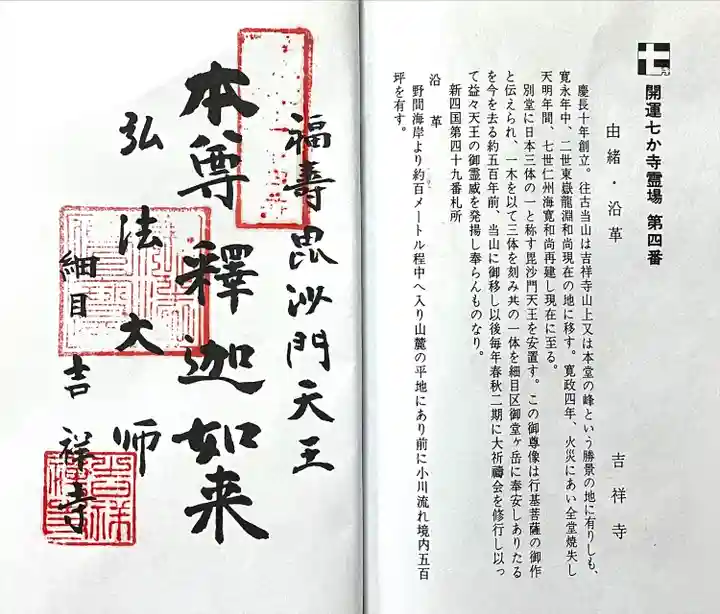 開運七か寺霊場 第四番
由緒・沿革
吉祥寺
慶長十年創立。往古当山は吉祥寺山上又は本堂の峰という勝景の地に有りしも、
寛永年中、二世東嶽龍淵和尚現在の地に移す。寛政四年、火災にあい全堂焼失し
天明年間、七世仁州海寛和尚再建し現在に至る。
別堂に日本三体の一と称す毘沙門天王を安置す。この御尊像は行基菩薩の御作
と伝えられ、一木を以て三体を刻み共の一体を細目区御堂ヶ岳に奉安しありたる
を今を去る約五百年前、当山に御移し以後毎年春秋二期に大祈禱会を修行し以っ
て益々天王の御霊威を発揚し奉らんものなり。
新四国第四十九番札所
沿革
野間海岸より約百メートル程中へ入り山麓の平地にあり前に小川流れ境内五百
坪を有す。
福壽毘沙門天王
本尊 釋迦如来
弘法大師
細目 吉祥寺